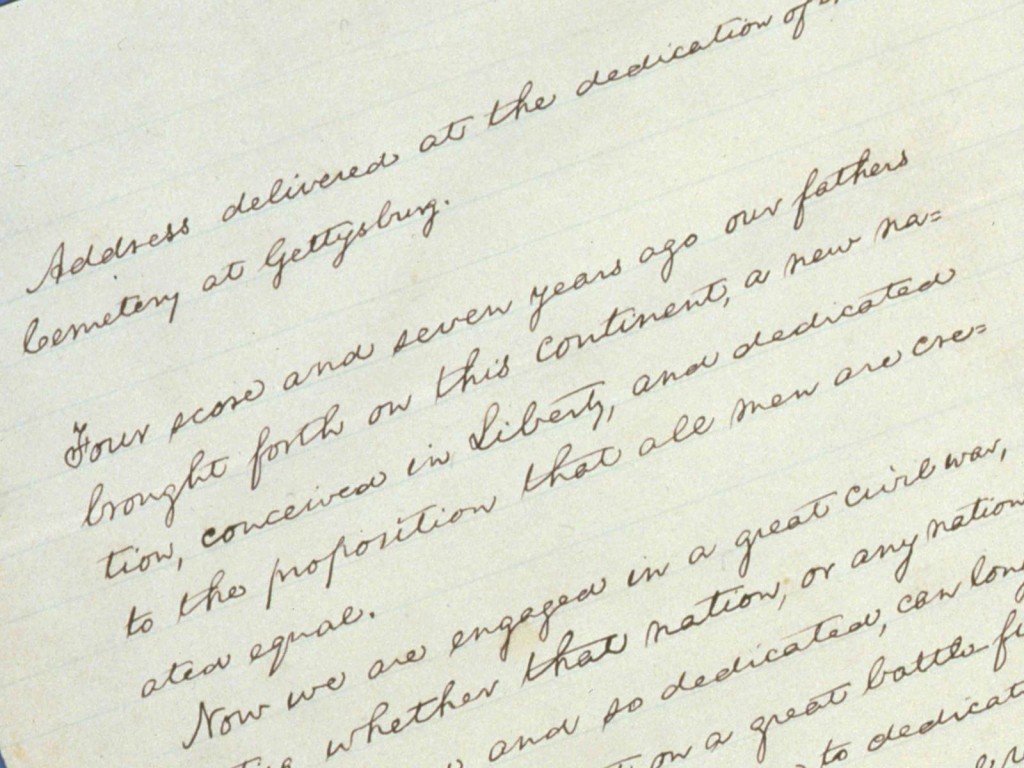 Address delivered at the dedication of
Cemetery at Gettysburg.
Four score and seven years ago our fathers
brought forth on this continent, a new na=
tion, conceived in Liberty, and dedicated
to the proposition that all men are cre=
ated equal.
Now we are engaged in a great civil war,
whether that nation, or any nation
and so dedicated, can long
on a great battle fi
to dedicat